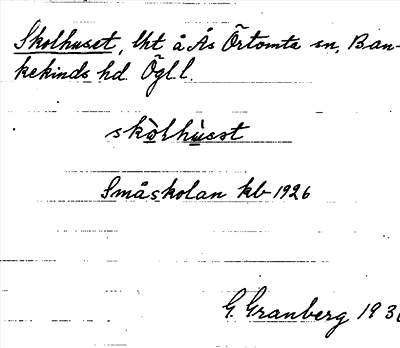 Skolhuset, lht å Ås Örtomta sn, Ban-
kekinds hd Ögl.
skòlhùsət
Småskolan kb 1926
G. Granberg 193